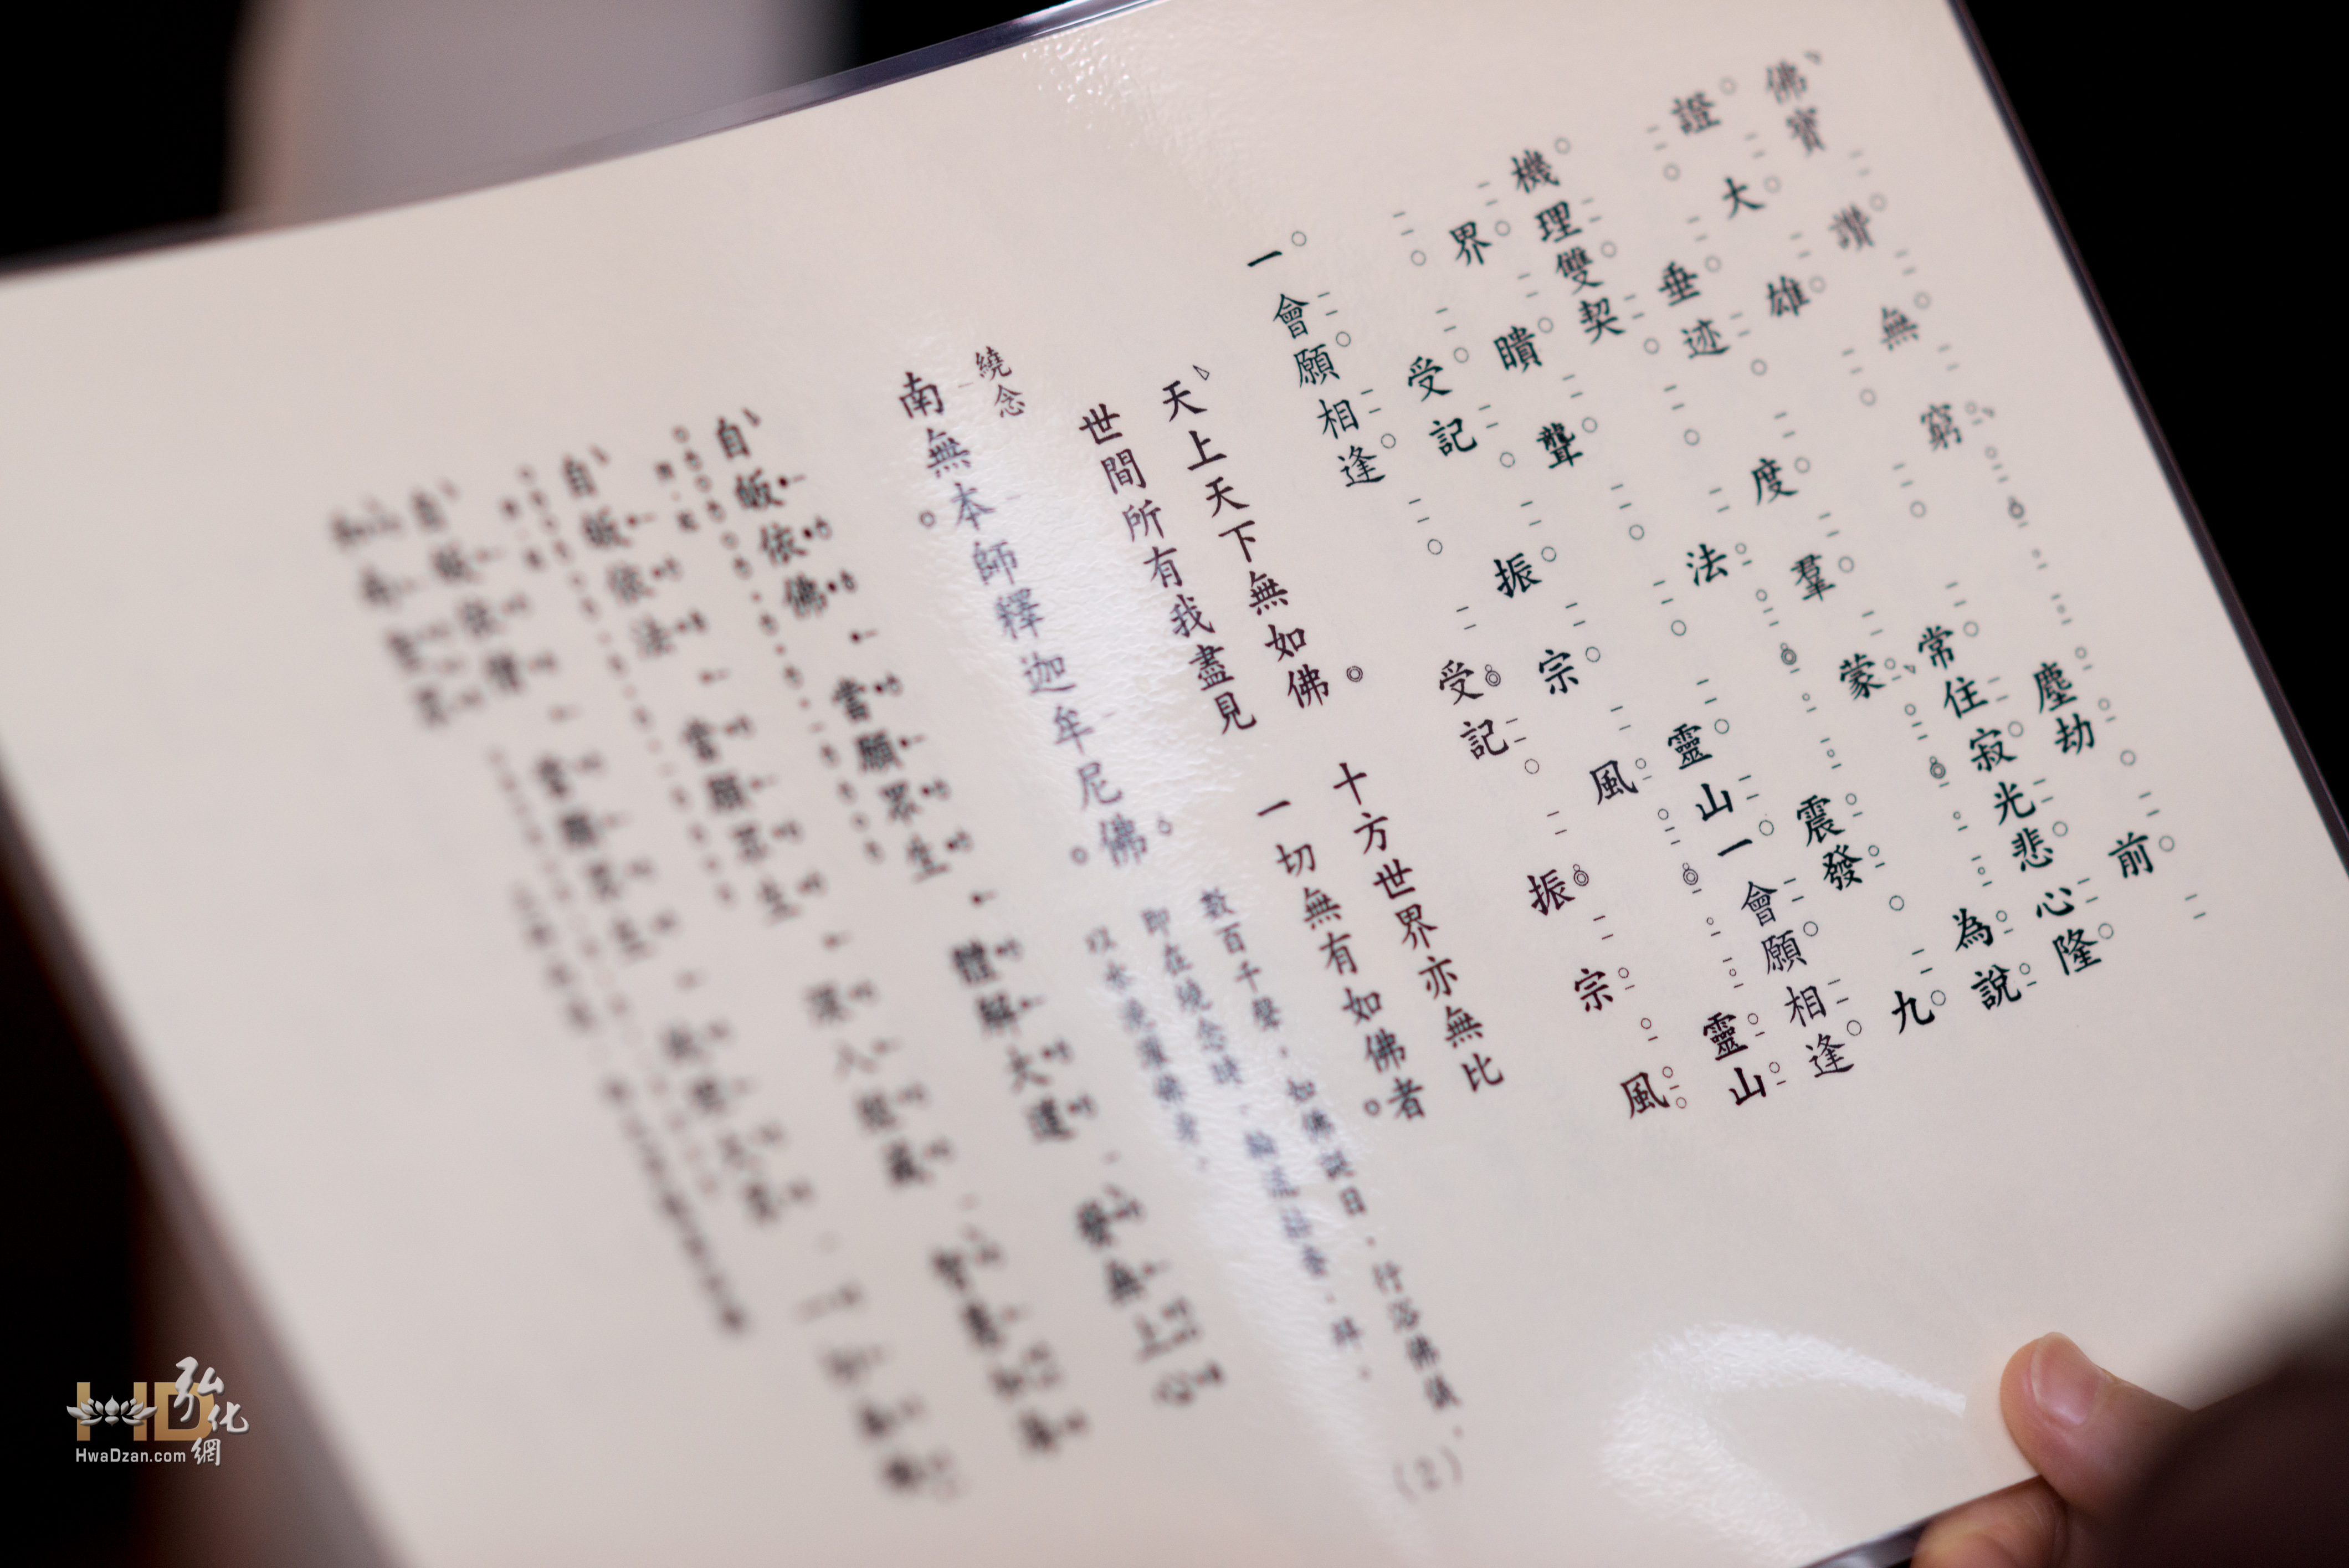 佛寶讚無窮 塵劫前
證大雄 常住寂光悲心隆
垂迹度羣蒙 為說
機理雙契法 震發九
界瞶聾 靈山一會願相逢
受記振宗風 靈山
一會願相逢 受記振宗風
天上天下無如佛 十方世界亦無比
世間所有我盡見 一切無有如佛者。
繞念
南無本師釋迦牟尼佛。
數百千聲,如佛誕日,行浴佛儀,
即在繞念時,輪流拈香,拜。
以水澆灌佛身,
自皈依佛 當願眾生 體解大道 發無上心
自皈依法 當願眾生 深入經藏 智慧如海
自皈依僧 當願眾生 統理大眾 一切無礙
和南聖眾
(2)
HD 弘化網
HwaDzan.com